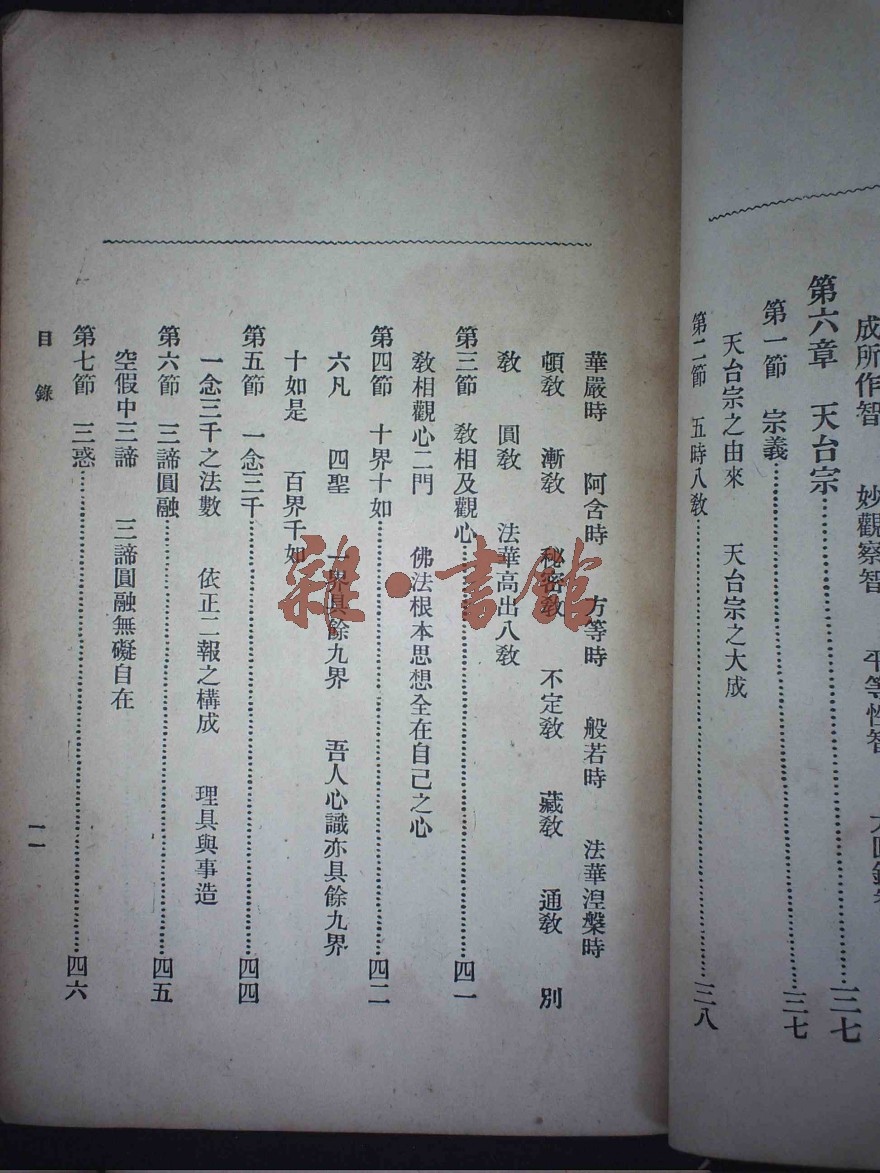 成所作智　妙觀察智　平等性智
第六章　天台宗……三七
第一節　宗義……三七
天台宗之由來　天台宗之大成
第二節　五時八教……三八
華嚴時　阿含時　方等時　般若時　法華涅槃時
頓教　漸教　秘密教　不定教　藏教　通教　別
教　圓教　法華高出八教
第三節　教相及觀心……四一
教相觀心二門　佛法根本思想全在自己之心
第四節　十界十如……四二
六凡　四聖　一界具餘九界　吾人心識亦具餘九界
十如是　百界千如
第五節　一念三千……四四
一念三千之法數　依正二報之構成　理具與事造
第六節　三諦圓融……四五
空假中三諦　三諦圓融無礙自在
第七節　三惑……四六
目錄
一一
雜·書館